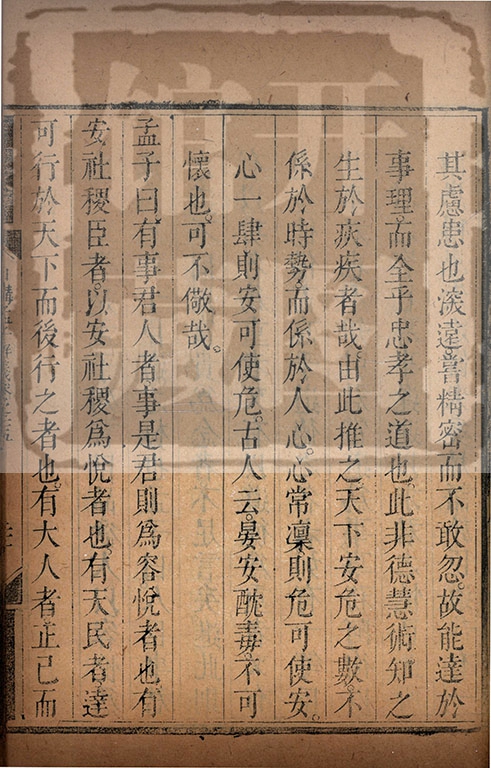 其慮患也深遠嘗精密而不敢忽。故能達於
事理。而全乎忠孝之道也。此非德慧術知之
生於疢疾者哉。由此推之。天下安危之數。不
係於時勢。而係於人心。心常凜則危可使安。
心一肆則安可使危。古人云。晏安酖毒。不可
懷也。可不儆哉。
孟子曰有事君人者事是君則爲容悅者也。有
安社稷臣者。以安社稷爲悅者也。有天民者。達
可行於天下而後行之者也。有大人者正己而